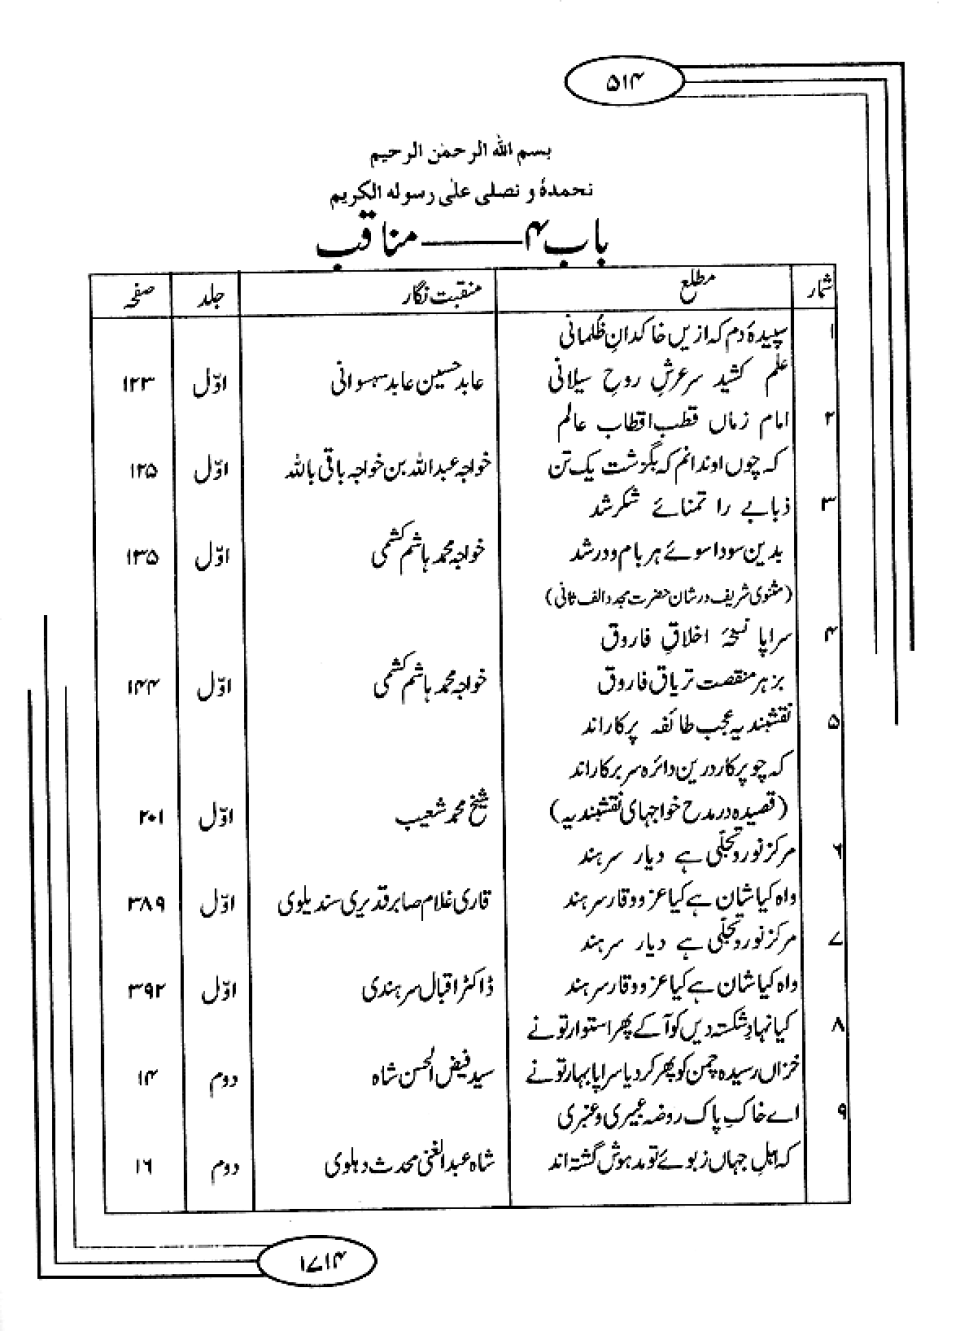 ۵۱۴
بسم اللہ الرحمٰن الرحیم
نحمدہٗ و نصلی علٰی رسولہ الکریم
باب ۴ ــــــ مناقب
شمار مطلع منقبت نگار جلد صفحہ
۱ سپیدۂ دم کہ ازیں خاکدانِ ظلمانی
علم کشید سرعرشِ روحِ سیلانی عابد حسین عابد سہسوانی اوّل ۱۲۳
۲ امام زماں قطب اقطاب عالم
کہ چوں اوندانم کہ بگزشت یک تن خواجہ عبداللہ بن خواجہ باقی باللہ اوّل ۱۲۵
۳ ذبابے را تمنائے شکر شد
بدین سودا سوئے ہر بام و در شد خواجہ محمد ہاشم کشمی اوّل ۱۳۵
(مثنوی شریف در شان حضرت مجدد الف ثانی)
۴ سراپا نسخۂ اخلاقِ فاروق
بزہر منقصت تریاق فاروق خواجہ محمد ہاشم کشمی اوّل ۱۴۴
۵ نقشبندیہ عجب طائفہ پرکاراند
کہ چو پرکار درین دائرہ سربرکاراند
(قصیدہ در مدح خواجہای نقشبندیہ) شیخ محمد شعیب اوّل ۲۰۱
۶ مرکز نور و تجلّی ہے دیار سرہند
واہ کیا شان ہے کیا عز و وقار سرہند قاری غلام صابر قدیری سندیلوی اوّل ۳۸۹
۷ مرکز نور و تجلّی ہے دیار سرہند
واہ کیا شان ہے کیا عز و وقار سرہند ڈاکٹر اقبال سرہندی اوّل ۳۹۲
۸ کیا نہادِ شکستہ دیں کو آکے پھر استوار تو نے
خزاں رسیدہ چمن کو پھر کر دیا سراپا بہار تو نے سید فیض الحسن شاہ دوم ۱۴
۹ اے خاکِ پاک روضہ عبیری و عنبری
کہ اہلِ جہاں زبوئے تو مدہوش گشتہ اند شاہ عبدالغنی محدث دہلوی دوم ۱۶
۱۷۱۴